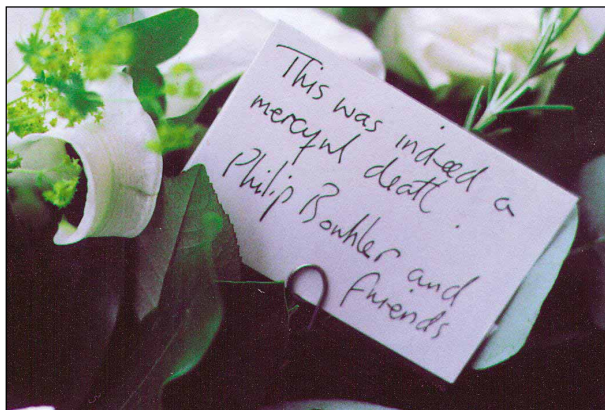 This was indeed a
merciful death.
Philip Bouhler and
friends